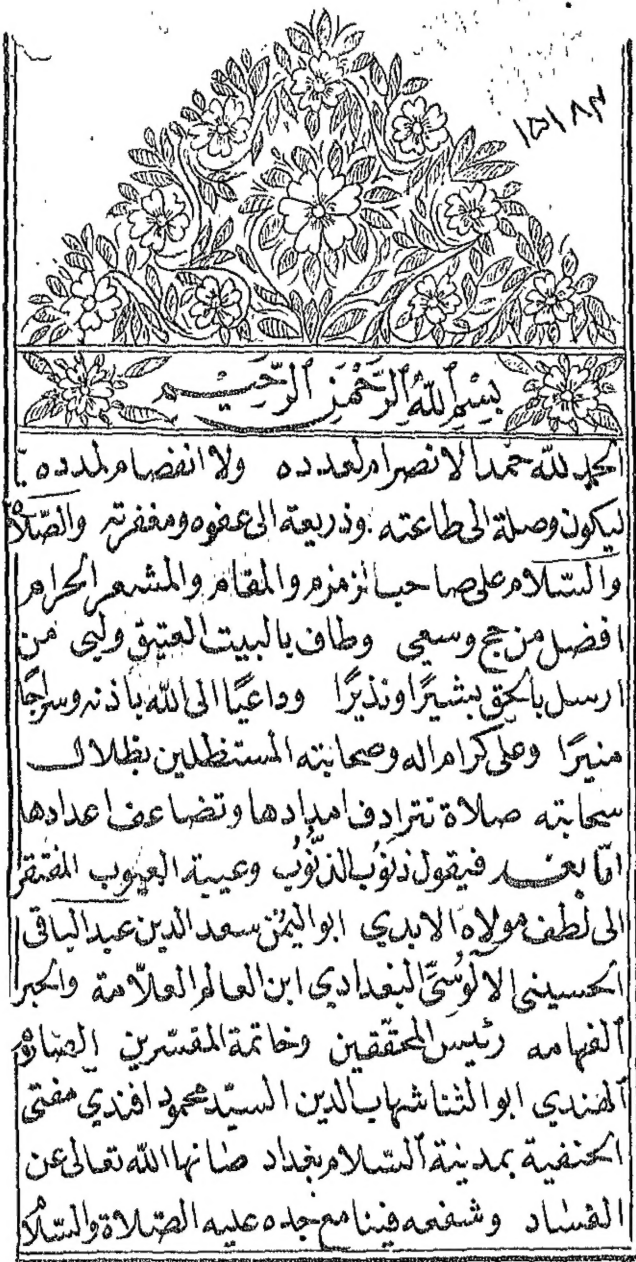 ١٥١٨٣
بِسْمِ اللهِ الرَّحْمٰنِ الرَّحِيْمِ
الحمد لله حمدا لا انصرام لعدده ولا انفصام لمدده
ليكون وصلة الى طاعته وذريعة الى عفوه ومغفرته والصلاة
والسلام على صاحب زمزم والمقام والمشعر الحرام
افضل من حج وسعى وطاف بالبيت العتيق ولبى من
ارسل بالحق بشيرًا ونذيرًا وداعيًا الى الله باذنه وسراجًا
منيرًا وعلى كرام اله وصحابته المستظلين بظلال
سحابته صلاة تترادف امدادها وتضاعف اعدادها
امّا بعد فيقول ذنوب الذنوب وعيبة العيوب المفتقر
الى لطف مولاه الابدي ابو اليُمن سعد الدين عبد الباقي
الحسيني الآلوسيّ البغدادي ابن العالم العلّامة والحبر
الفهامه رئيس المحققين وخاتمة المفسّرين الصارم
الهندي ابو الثنا شهاب الدين السيّد محمود افندي مفتي
الحنفية بمدينة السّلام بغداد صانها الله تعالى عن
الفساد وشفعه فينا مع جده عليه الصّلاة والسّلا